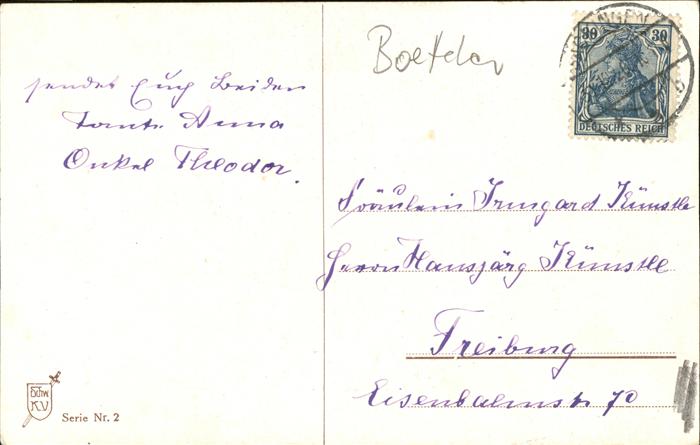 sendet Euch beiden
Tante Anna
Onkel Theodor.
Boetteler
30 30
DEUTSCHES REICH
Fräulein Irmgard Künstle
Herrn Hansjörg Künstle
Freiburg
Eisenbahnstr 70
Schw.
K.V
Serie Nr. 2